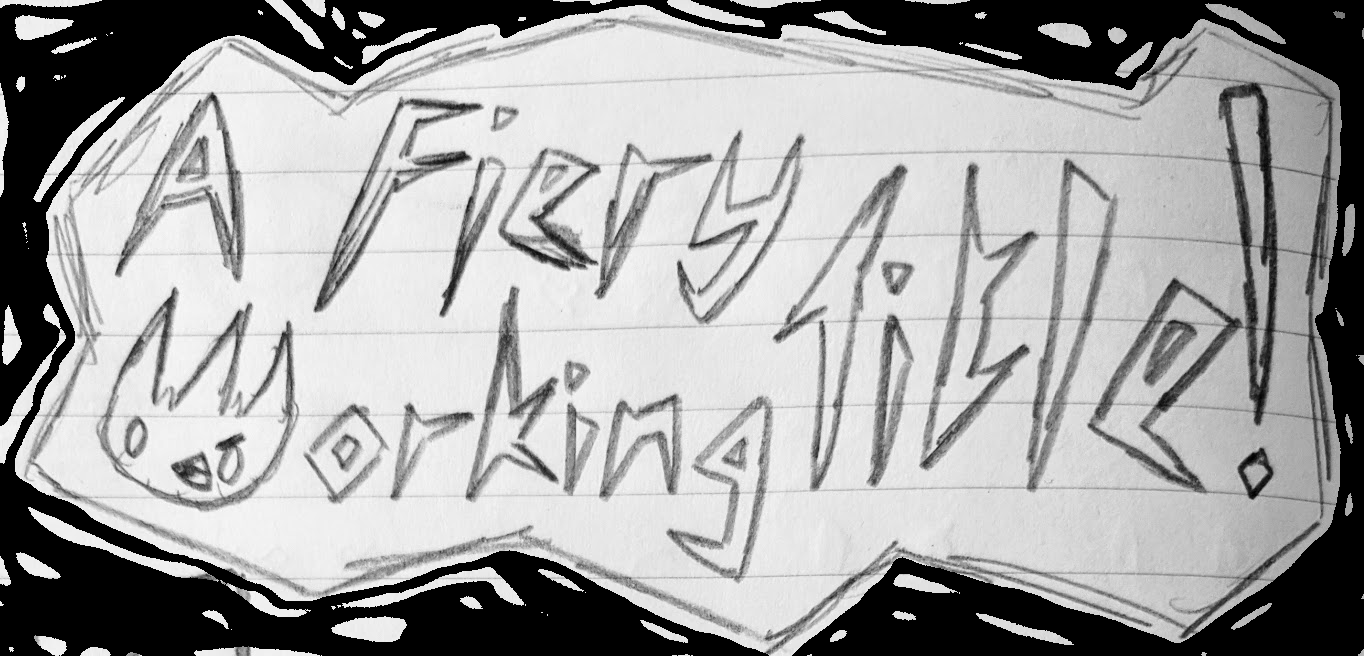 A Fiery
Working Title!